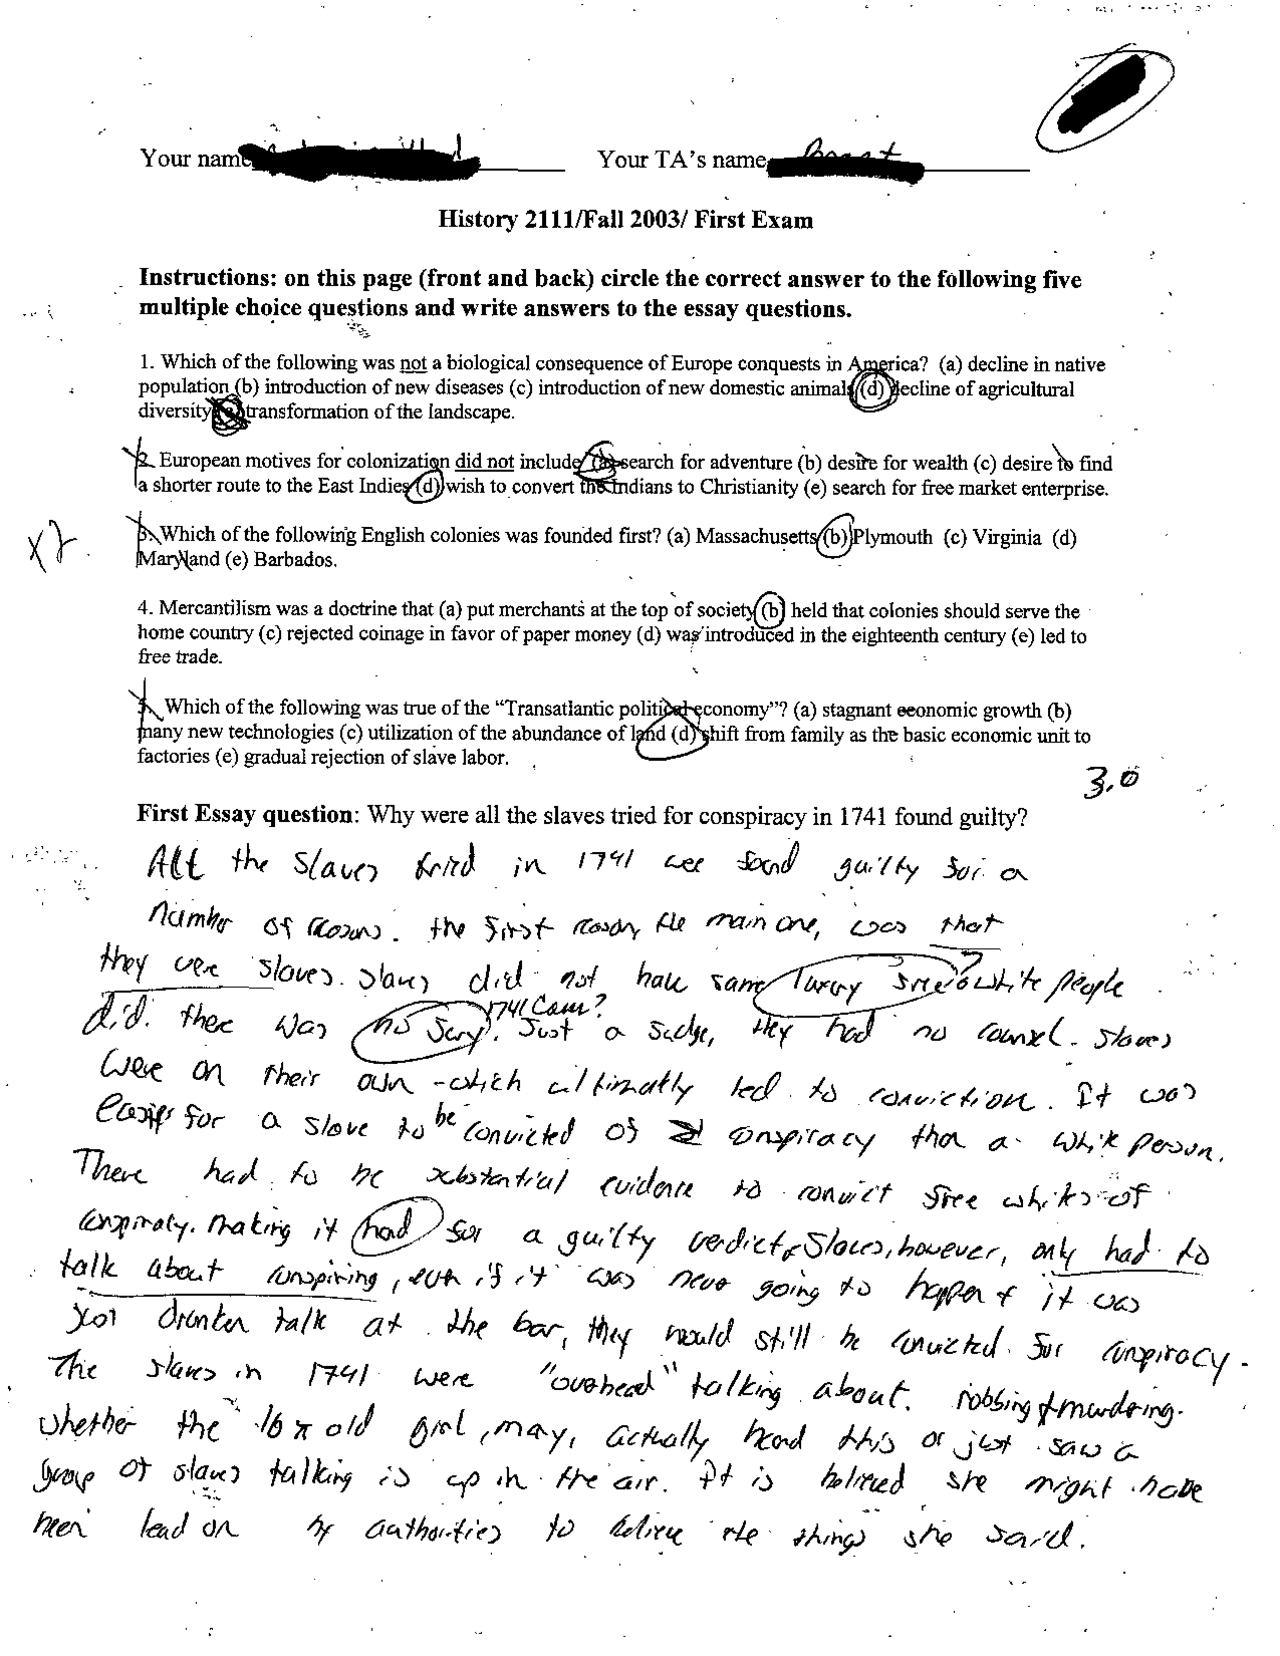 Your name
Your TA's name
History 2111/Fall 2003/ First Exam
Instructions: on this page (front and back) circle the correct answer to the following five
multiple choice questions and write answers to the essay questions.
1. Which of the following was not a biological consequence of Europe conquests in America? (a) decline in native
population (b) introduction of new diseases (c) introduction of new domestic animals (d) decline of agricultural
diversity (e) transformation of the landscape.
2. European motives for colonization did not include (a) search for adventure (b) desire for wealth (c) desire to find
a shorter route to the East Indies (d) wish to convert the Indians to Christianity (e) search for free market enterprise.
3. Which of the following English colonies was founded first? (a) Massachusetts (b) Plymouth (c) Virginia (d)
Maryland (e) Barbados.
4. Mercantilism was a doctrine that (a) put merchants at the top of society (b) held that colonies should serve the
home country (c) rejected coinage in favor of paper money (d) was introduced in the eighteenth century (e) led to
free trade.
5. Which of the following was true of the "Transatlantic political economy"? (a) stagnant economic growth (b)
many new technologies (c) utilization of the abundance of land (d) shift from family as the basic economic unit to
factories (e) gradual rejection of slave labor.
3.0
First Essay question: Why were all the slaves tried for conspiracy in 1741 found guilty?
All the slaves tried in 1741 were found guilty for a
number of reasons. the first reason, the main one, was that
they were slaves. slaves did not have same luxury free white people
?
did. there was no jury. Just a judge, they had no counsel. slaves
1741 Cam?
were on their own - which ultimatly led to conviction. It was
easier for a slave to be convicted of conspiracy than a white person.
There had to be substantial evidence to convict free whites of
conspiracy. making it hard for a guilty verdict. Slaves, however, only had to
talk about conspiring, even if it was never going to happen & it was
just drunken talk at the bar, they would still be convicted for conspiracy.
The slaves in 1741 were "overhead" talking about robbing & murdering.
whether the 16 yr old girl, mary, actually heard this or just saw a
group of slaves talking is up in the air. It is believed she might have
been lead on by authorities to believe the things she said.